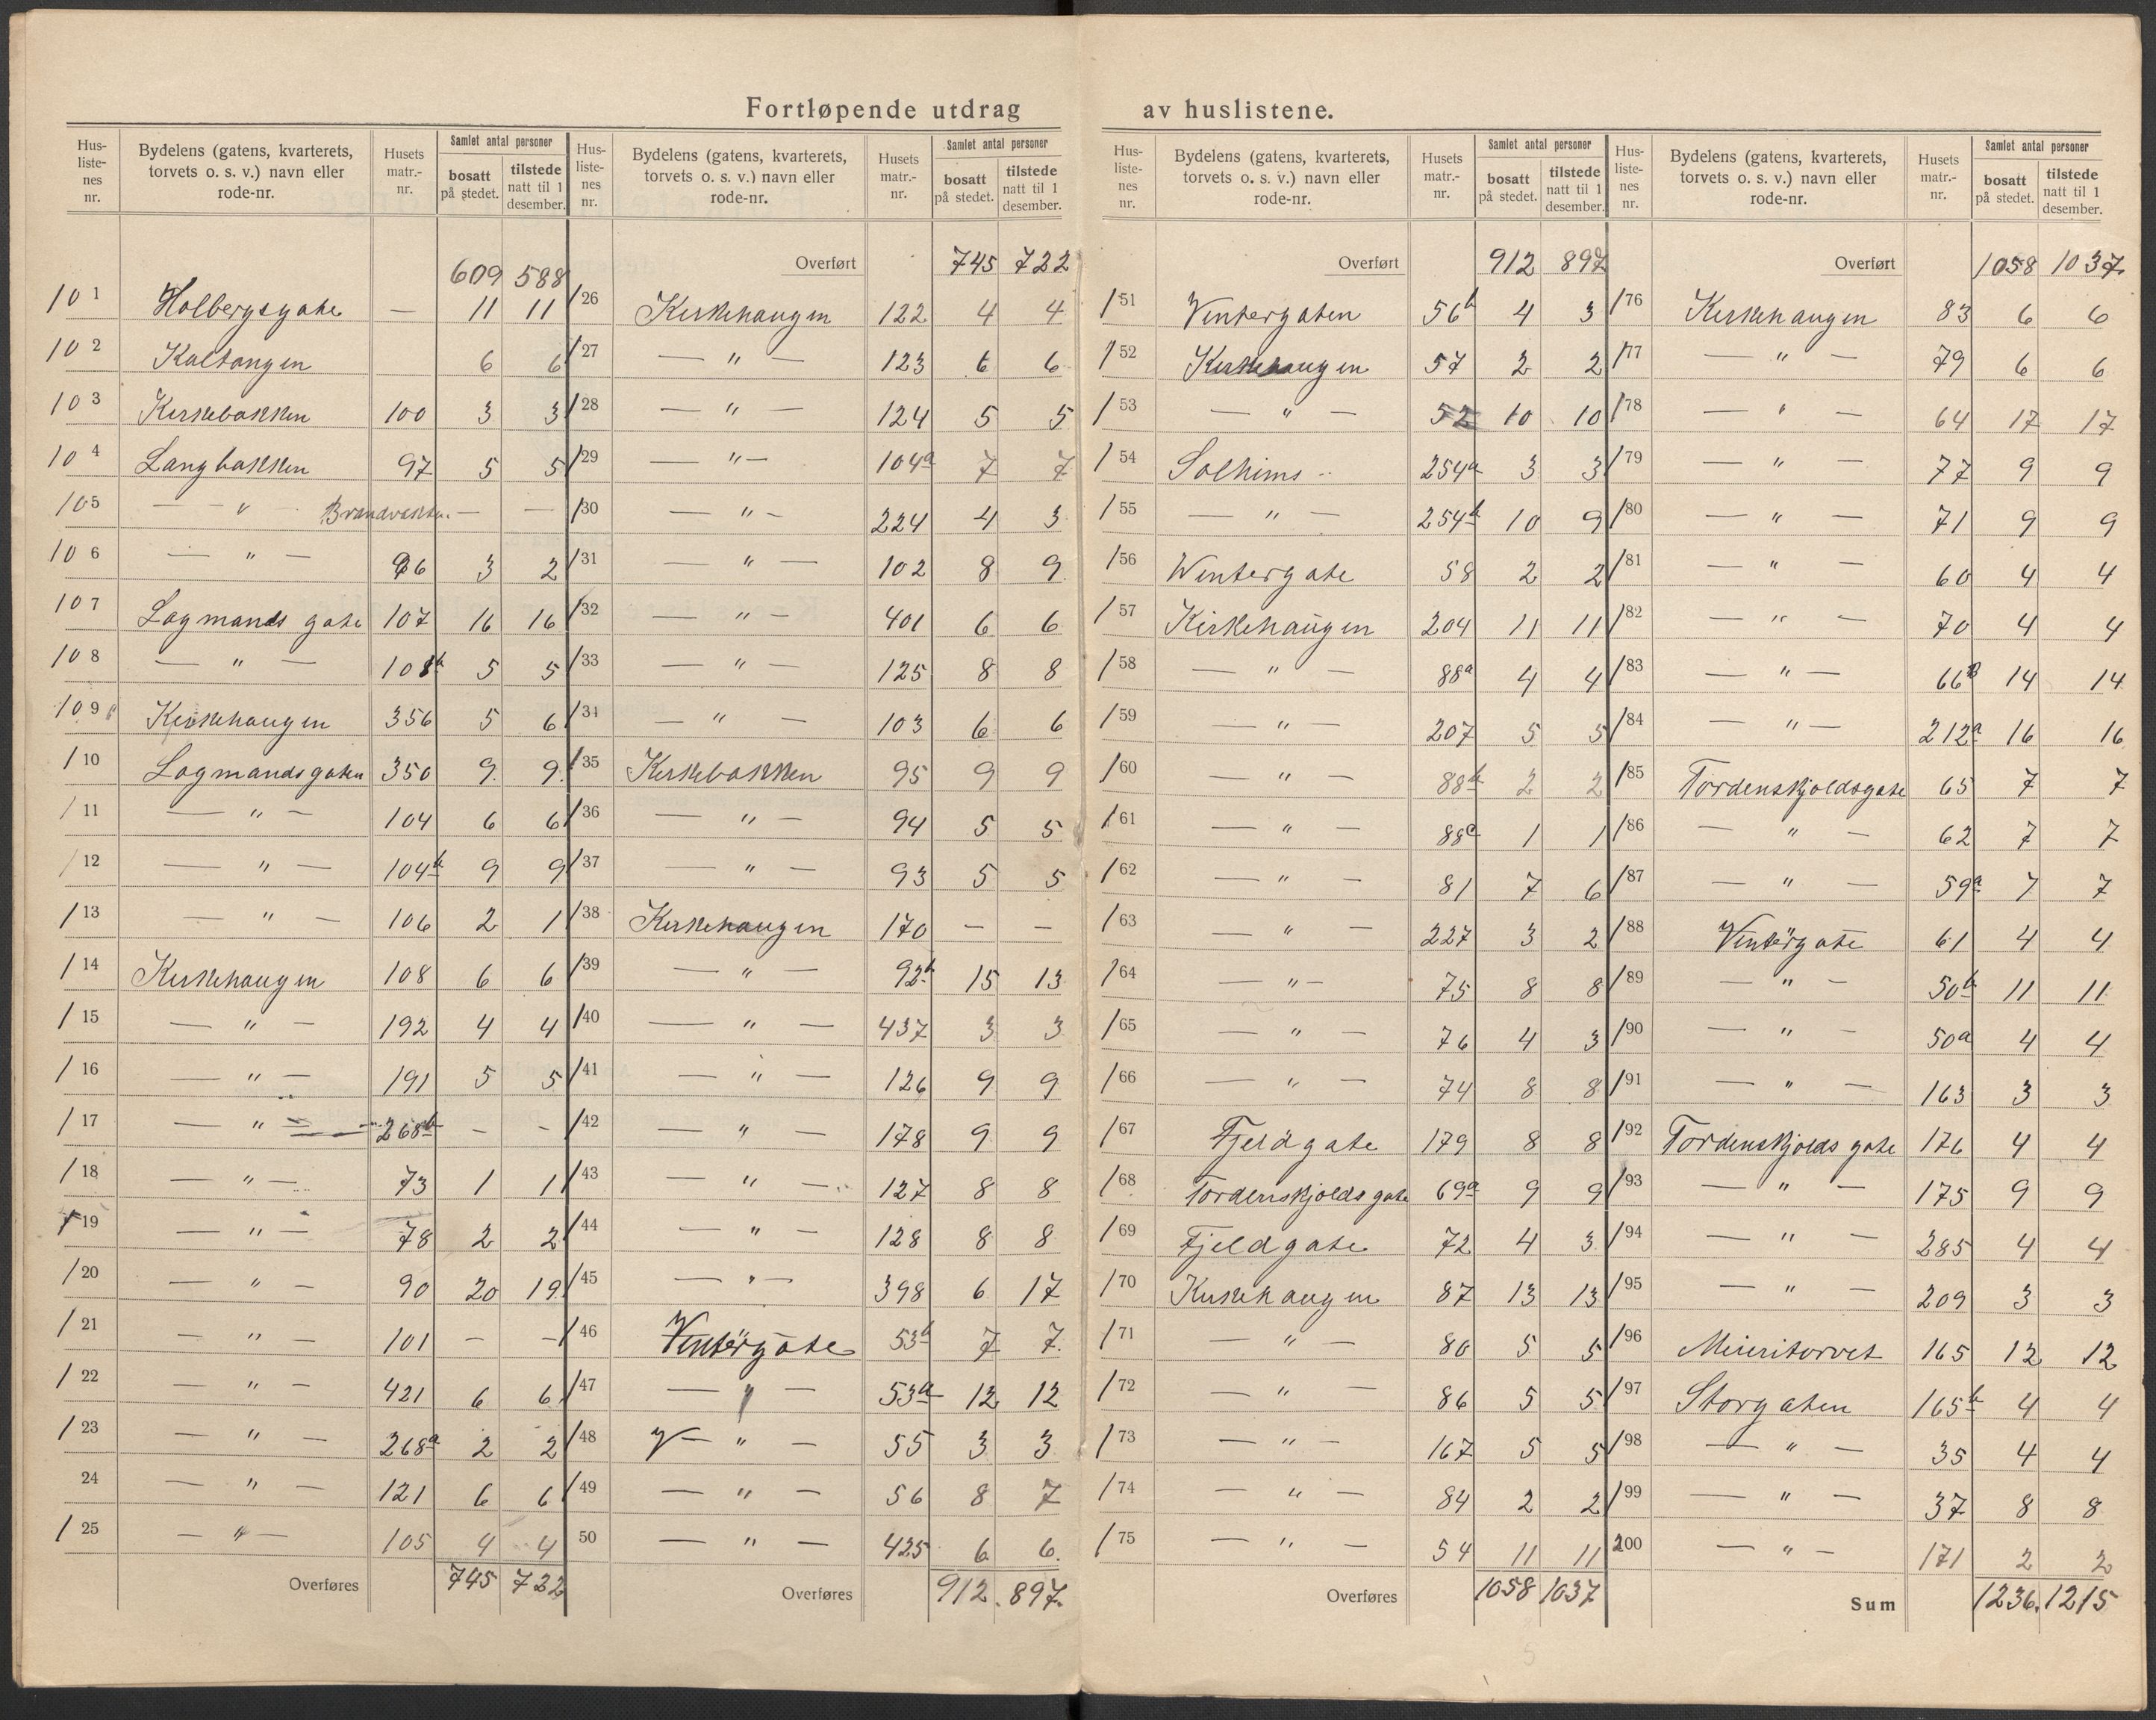 Fortløpende utdrag av huslistene.
Hus-liste-nes nr. | Bydelens (gatens, kvarterets, torvets o. s. v.) navn eller rode-nr. | Husets matr.-nr. | Samlet antal personer bosatt på stedet. | tilstede natt til 1 desember.
609 588
101 Holbergsgate — 11 11
102 Kaltangen 6 6
103 Kirkebakken 100 3 3
104 Langbakken 97 5 5
105 — " Brandvakten — —
106 — " — 96 3 2
107 Lagmands gate 107 16 16
108 — " — 108b 5 5
109 Kirkehaugen 356 5 6
110 Lagmandsgaten 350 9 9
111 — " — 104 6 6
112 — " — 104b 9 9
113 — " — 106 2 1
114 Kirkehaugen 108 6 6
115 — " — 192 4 4
116 — " — 191 5 5
117 — " — 268b - -
118 — " — 73 1 1
119 — " — 78 2 2
120 — " — 90 20 19
121 — " — 101 - -
122 — " — 421 6 6
123 — " — 268a 2 2
24 — " — 121 6 6
125 — " — 105 4 4
Overføres 745 722
Hus-liste-nes nr. | Bydelens (gatens, kvarterets, torvets o. s. v.) navn eller rode-nr. | Husets matr.-nr. | Samlet antal personer bosatt på stedet. | tilstede natt til 1 desember.
Overført 745 722
126 Kirkehaugen 122 4 4
127 — " — 123 6 6
128 — " — 124 5 5
129 — " — 104a 7 7
130 — " — 224 4 3
131 — " — 102 8 9
132 — " — 401 6 6
133 — " — 125 8 8
134 — " — 103 6 6
135 Kirkebakken 95 9 9
136 — " — 94 5 5
137 — " — 93 5 5
138 Kirkehaugen 170 — —
139 — " — 92b 15 13
140 — " — 437 3 3
141 — " — 126 9 9
142 — " — 178 9 9
143 — " — 127 8 8
144 — " — 128 8 8
145 — " — 398 6 17
146 Vintergate 53b 7 7
147 — " — 53a 12 12
148 V — " — 55 3 3
149 — " — 56 8 7
50 — " — 425 6 6
Overføres 912 897
Hus-liste-nes nr. | Bydelens (gatens, kvarterets, torvets o. s. v.) navn eller rode-nr. | Husets matr.-nr. | Samlet antal personer bosatt på stedet. | tilstede natt til 1 desember.
Overført 912 897
151 Vintergaten 56b 4 3
152 Kirkehaugen 57 2 2
153 — " — 52 10 10
154 Solhims - 254a 3 3
155 — " — 254b 10 9
156 Wintergate 58 2 2
157 Kirkehaugen 204 11 11
158 — " — 88a 4 4
159 — " — 207 5 5
160 — " — 88b 2 2
161 — " — 88c 1 1
162 — " — 81 7 6
163 — " — 227 3 2
164 — " — 75 8 8
165 — " — 76 4 3
166 — " — 74 8 8
167 Fjeldgate 179 8 8
168 Tordenskjolds gate 69a 9 9
169 Fjeldgate 72 4 3
170 Kirkehaugen 87 13 13
171 — " — 80 5 5
172 — " — 86 5 5
173 — " — 167 5 5
174 — " — 84 2 2
175 — " — 54 11 11
Overføres 1058 1037
Hus-liste-nes nr. | Bydelens (gatens, kvarterets, torvets o. s. v.) navn eller rode-nr. | Husets matr.-nr. | Samlet antal personer bosatt på stedet. | tilstede natt til 1 desember.
Overført 1058 1037
176 Kirkehaugen 83 6 6
177 — " — 79 6 6
178 — " — 64 17 17
179 — " — 77 9 9
180 — " — 71 9 9
181 — " — 60 4 4
182 — " — 70 4 4
183 — " — 66B 14 14
184 — " — 212a 16 16
185 Tordenskjoldsgate 65 7 7
186 — " — 62 7 7
187 — " — 59a 7 7
188 Vintergate 61 4 4
189 — " — 50b 11 11
190 — " — 50a 4 4
191 — " — 163 3 3
192 Tordenskjolds gate 176 4 4
193 — " — 175 9 9
194 — " — 285 4 4
195 — " — 209 3 3
196 Meieritorvet 165 12 12
197 Storgaten 165b 4 4
198 — " — 35 4 4
199 — " — 37 8 8
200 — " — 171 2 2
Sum 1236 1215